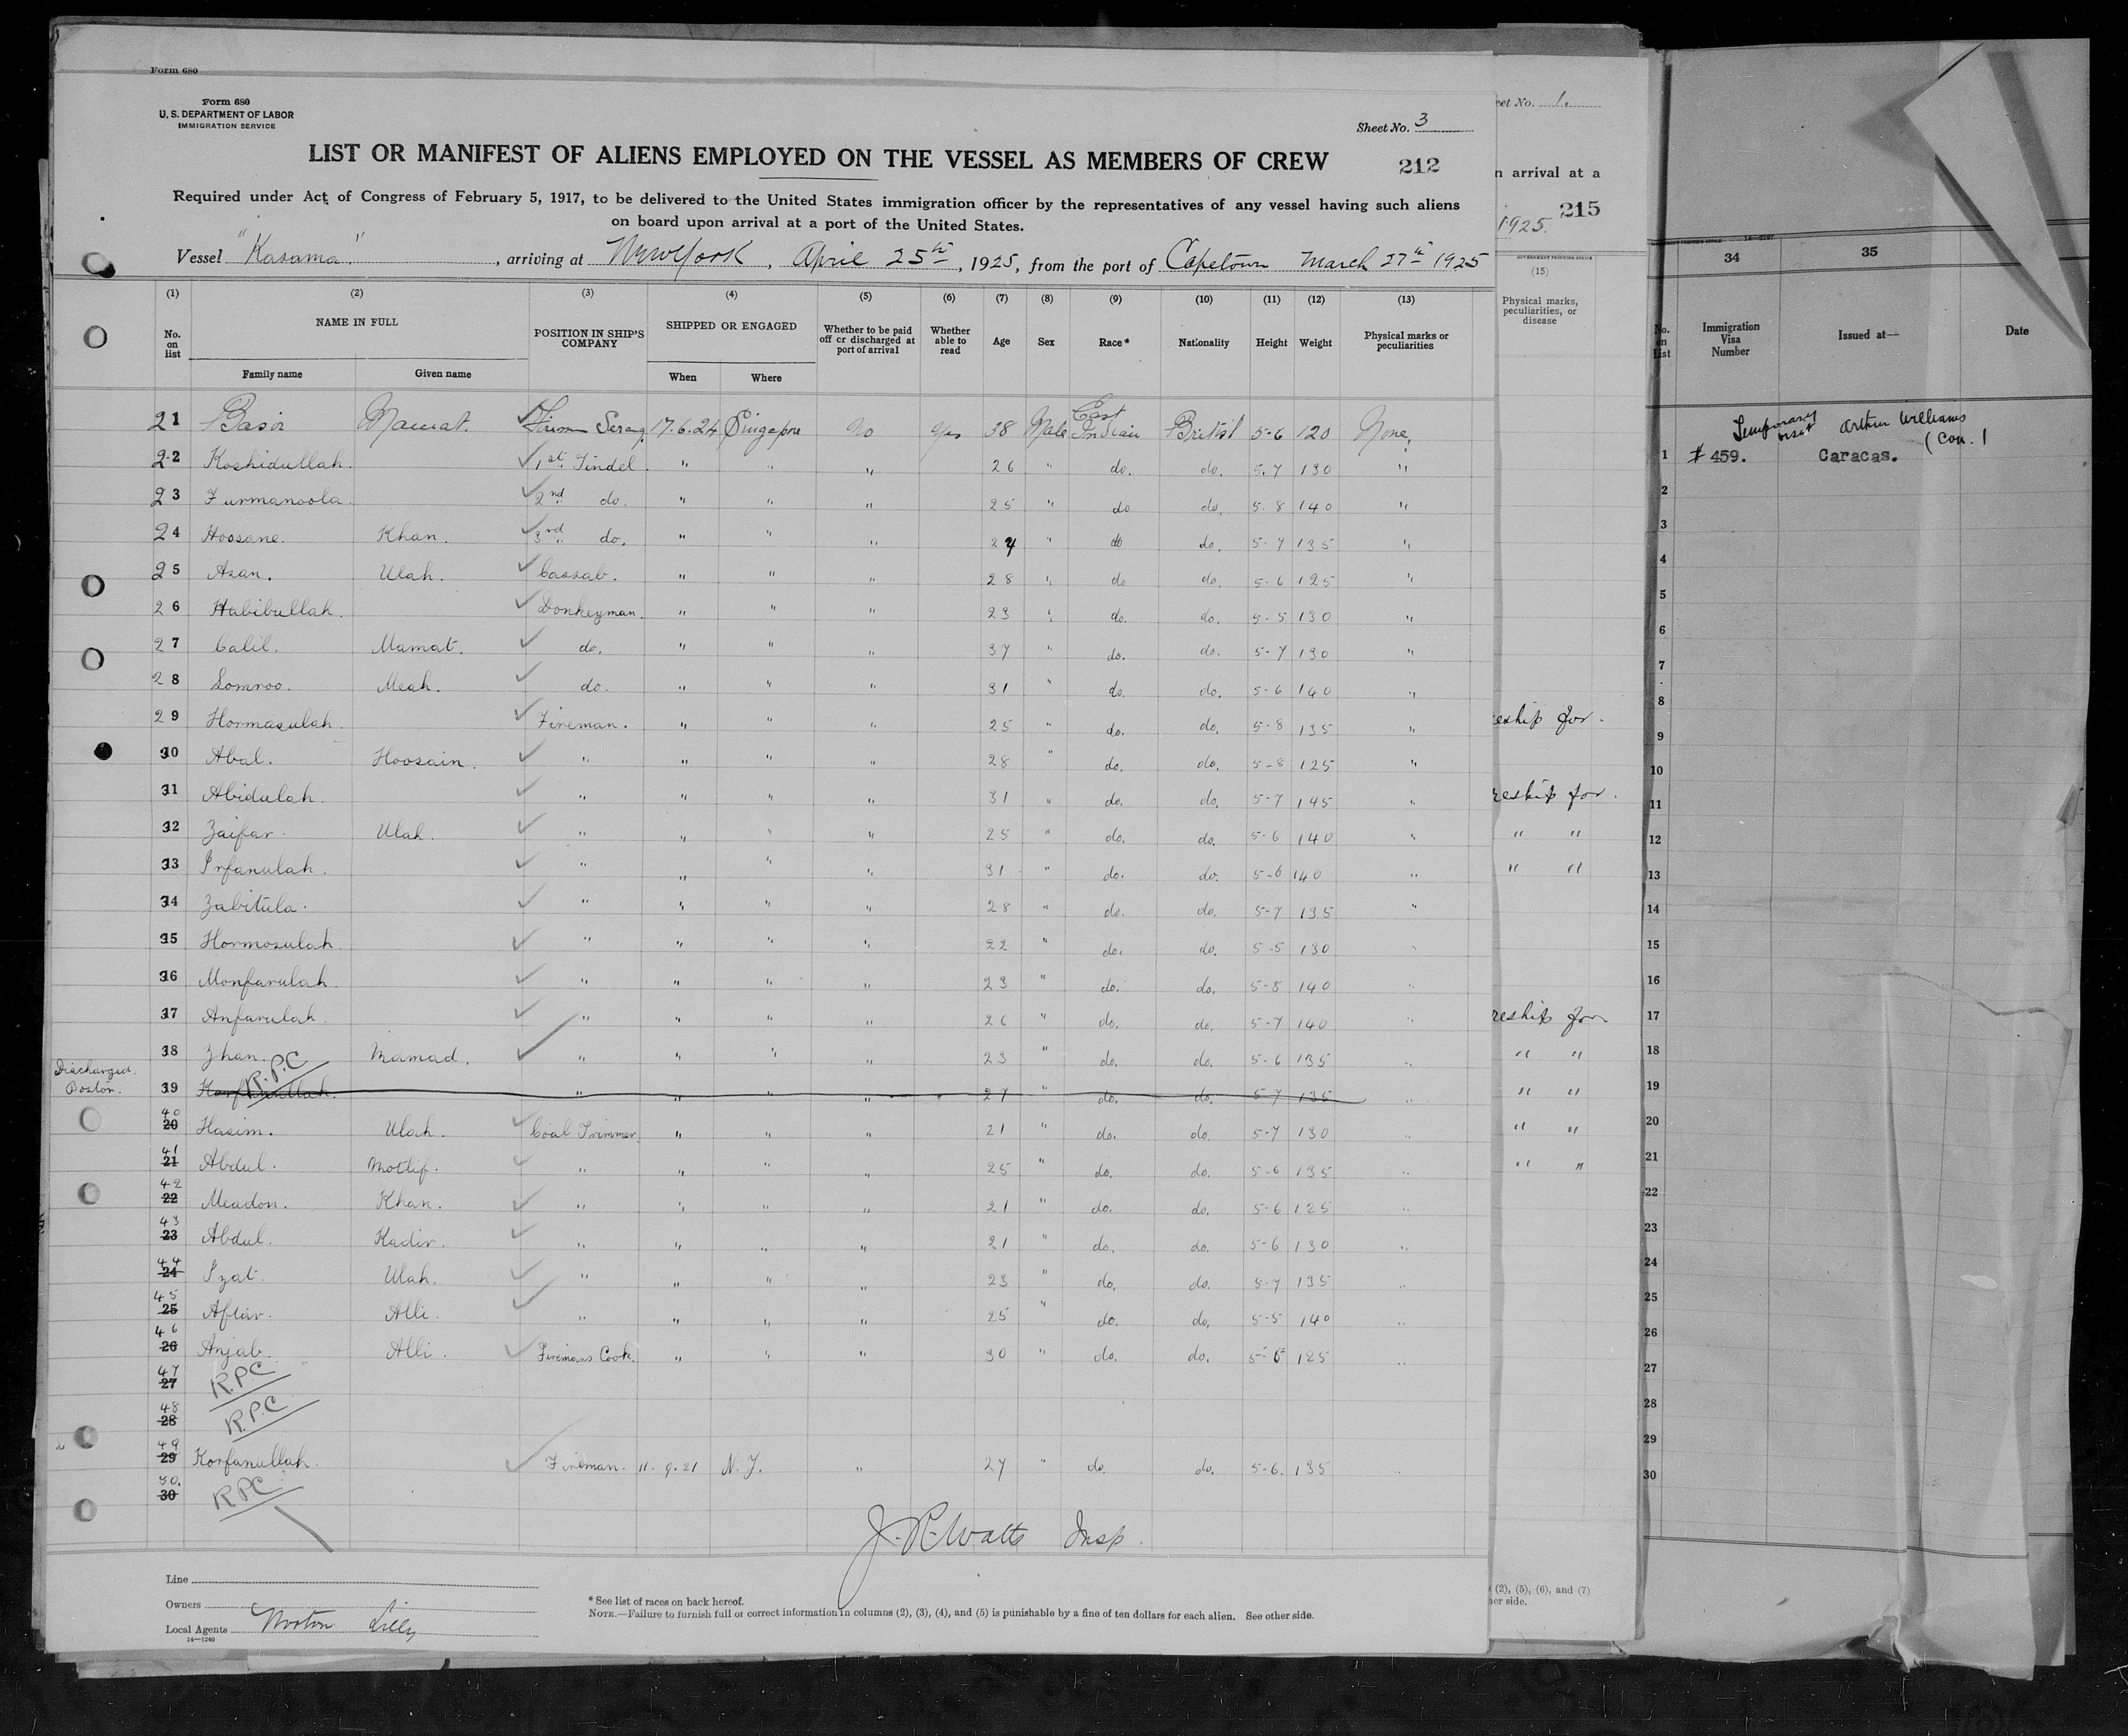 Form 680
Form 680
U. S. DEPARTMENT OF LABOR
IMMIGRATION SERVICE
Sheet No. 3
LIST OR MANIFEST OF ALIENS EMPLOYED ON THE VESSEL AS MEMBERS OF CREW 212
Required under Act of Congress of February 5, 1917, to be delivered to the United States immigration officer by the representatives of any vessel having such aliens
on board upon arrival at a port of the United States.
Vessel "Kasama", arriving at New York, April 25th, 1925, from the port of Capetown March 27th 1925
(1) (2) (3) (4) (5) (6) (7) (8) (9) (10) (11) (12) (13)
No. on list NAME IN FULL POSITION IN SHIP'S COMPANY SHIPPED OR ENGAGED Whether to be paid off or discharged at port of arrival Whether able to read Age Sex Race* Nationality Height Weight Physical marks or peculiarities
Family name Given name When Where
21 Basir Mamat. Serang 17.6.24 Singapore No Yes 38 Male East Indian British 5-6 120 None
22 Koshidullah. 1st Tindel. " " " 26 " do. do. 5.7 130 "
23 Furmanoola. 2nd do. " " " 25 " do do. 5.8 140 "
24 Hoosane. Khan. 3rd do. " " " 24 " do do. 5-7 135 "
25 Asan. Ulah. Cassab. " " " 28 " do do. 5-6 125 "
26 Habibullah. Donkeyman. " " " 23 " do. do. 5-5 130 "
27 Calil. Mamat. do. " " " 37 " do. do. 5-7 130 "
28 Somroo. Meah. do. " " " 31 " do. do. 5-6 140 "
29 Hormasulah. Fireman. " " " 25 " do. do. 5-8 135 "
30 Abal. Hoosain. " " " " 28 " do. do. 5-8 125 "
31 Abidulah. " " " " 31 " do. do. 5-7 145 "
32 Zaifar. Ulah. " " " " 25 " do. do. 5-6 140 "
33 Irfanulah. " " " " 31 " do. do. 5-6 140 "
34 Zabitula. " " " " 28 " do. do. 5-7 135 "
35 Hormosulah. " " " " 22 " do. do. 5-5 130 "
36 Monfarulah. " " " " 23 " do. do. 5-8 140 "
37 Anfarulah. " " " " 26 " do. do. 5-7 140 "
38 Zhan. Mamad. " " " " 23 " do. do. 5-6 135 "
Discharged. Boston. 39 Korfanullah. R.P.C " " " " 27 " do. do. 5-7 135 "
40 20 Hasim. Ulah. Coal Trimmer. " " " 21 " do. do. 5-7 130 "
41 21 Abdul. Motlif. " " " " 25 " do. do. 5-6 135 "
42 22 Meadon. Khan. " " " " 21 " do. do. 5-6 125 "
43 23 Abdul. Kadir. " " " " 21 " do. do. 5-6 130 "
44 24 Izat. Ulah. " " " " 23 " do. do. 5-7 135 "
45 25 Aftar. Alli. " " " " 25 " do. do. 5-5 140 "
46 26 Anjab. Alli. Firemans Cook. " " " 30 " do. do. 5-6 125 "
47 27 R.P.C
48 28 R.P.C
49 29 Korfanullah. Fireman. 11.9.21 N.Y. " 27 " do. do. 5-6. 135 "
50. 30 R.P.C
J. R. Watts Insp.
Line
Owners
Local Agents Norton Lilly
14—1240
* See list of races on back hereof.
NOTE.—Failure to furnish full or correct information in columns (2), (3), (4), and (5) is punishable by a fine of ten dollars for each alien. See other side.
eet No. 1.
n arrival at a
215
1925.
GOVERNMENT PRINTING OFFICE
(15)
Physical marks,
peculiarities, or
disease
eship for.
reship for.
" "
" "
reship for
" "
" "
" "
" "
(2), (5), (6), and (7)
her side.
34 35
No. on List Immigration Visa Number Issued at— Date
Temporary visit Arthur Williams
(Con.
1 # 459. Caracas.
2
3
4
5
6
7
8
9
10
11
12
13
14
15
16
17
18
19
20
21
22
23
24
25
26
27
28
29
30